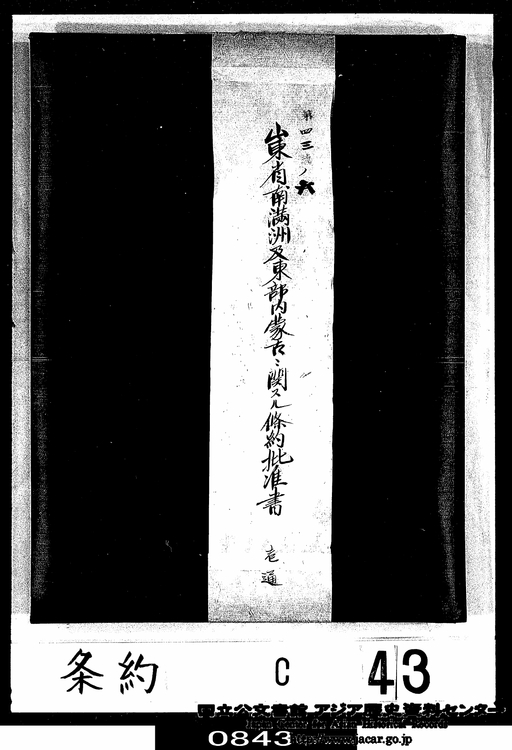 第四三號ノ六
山東省南滿洲及東部内蒙古ニ關スル條約批准書
壱通
条約 C 43
国立公文書館 アジア歴史資料センター
http://www.jacar.go.jp
0843